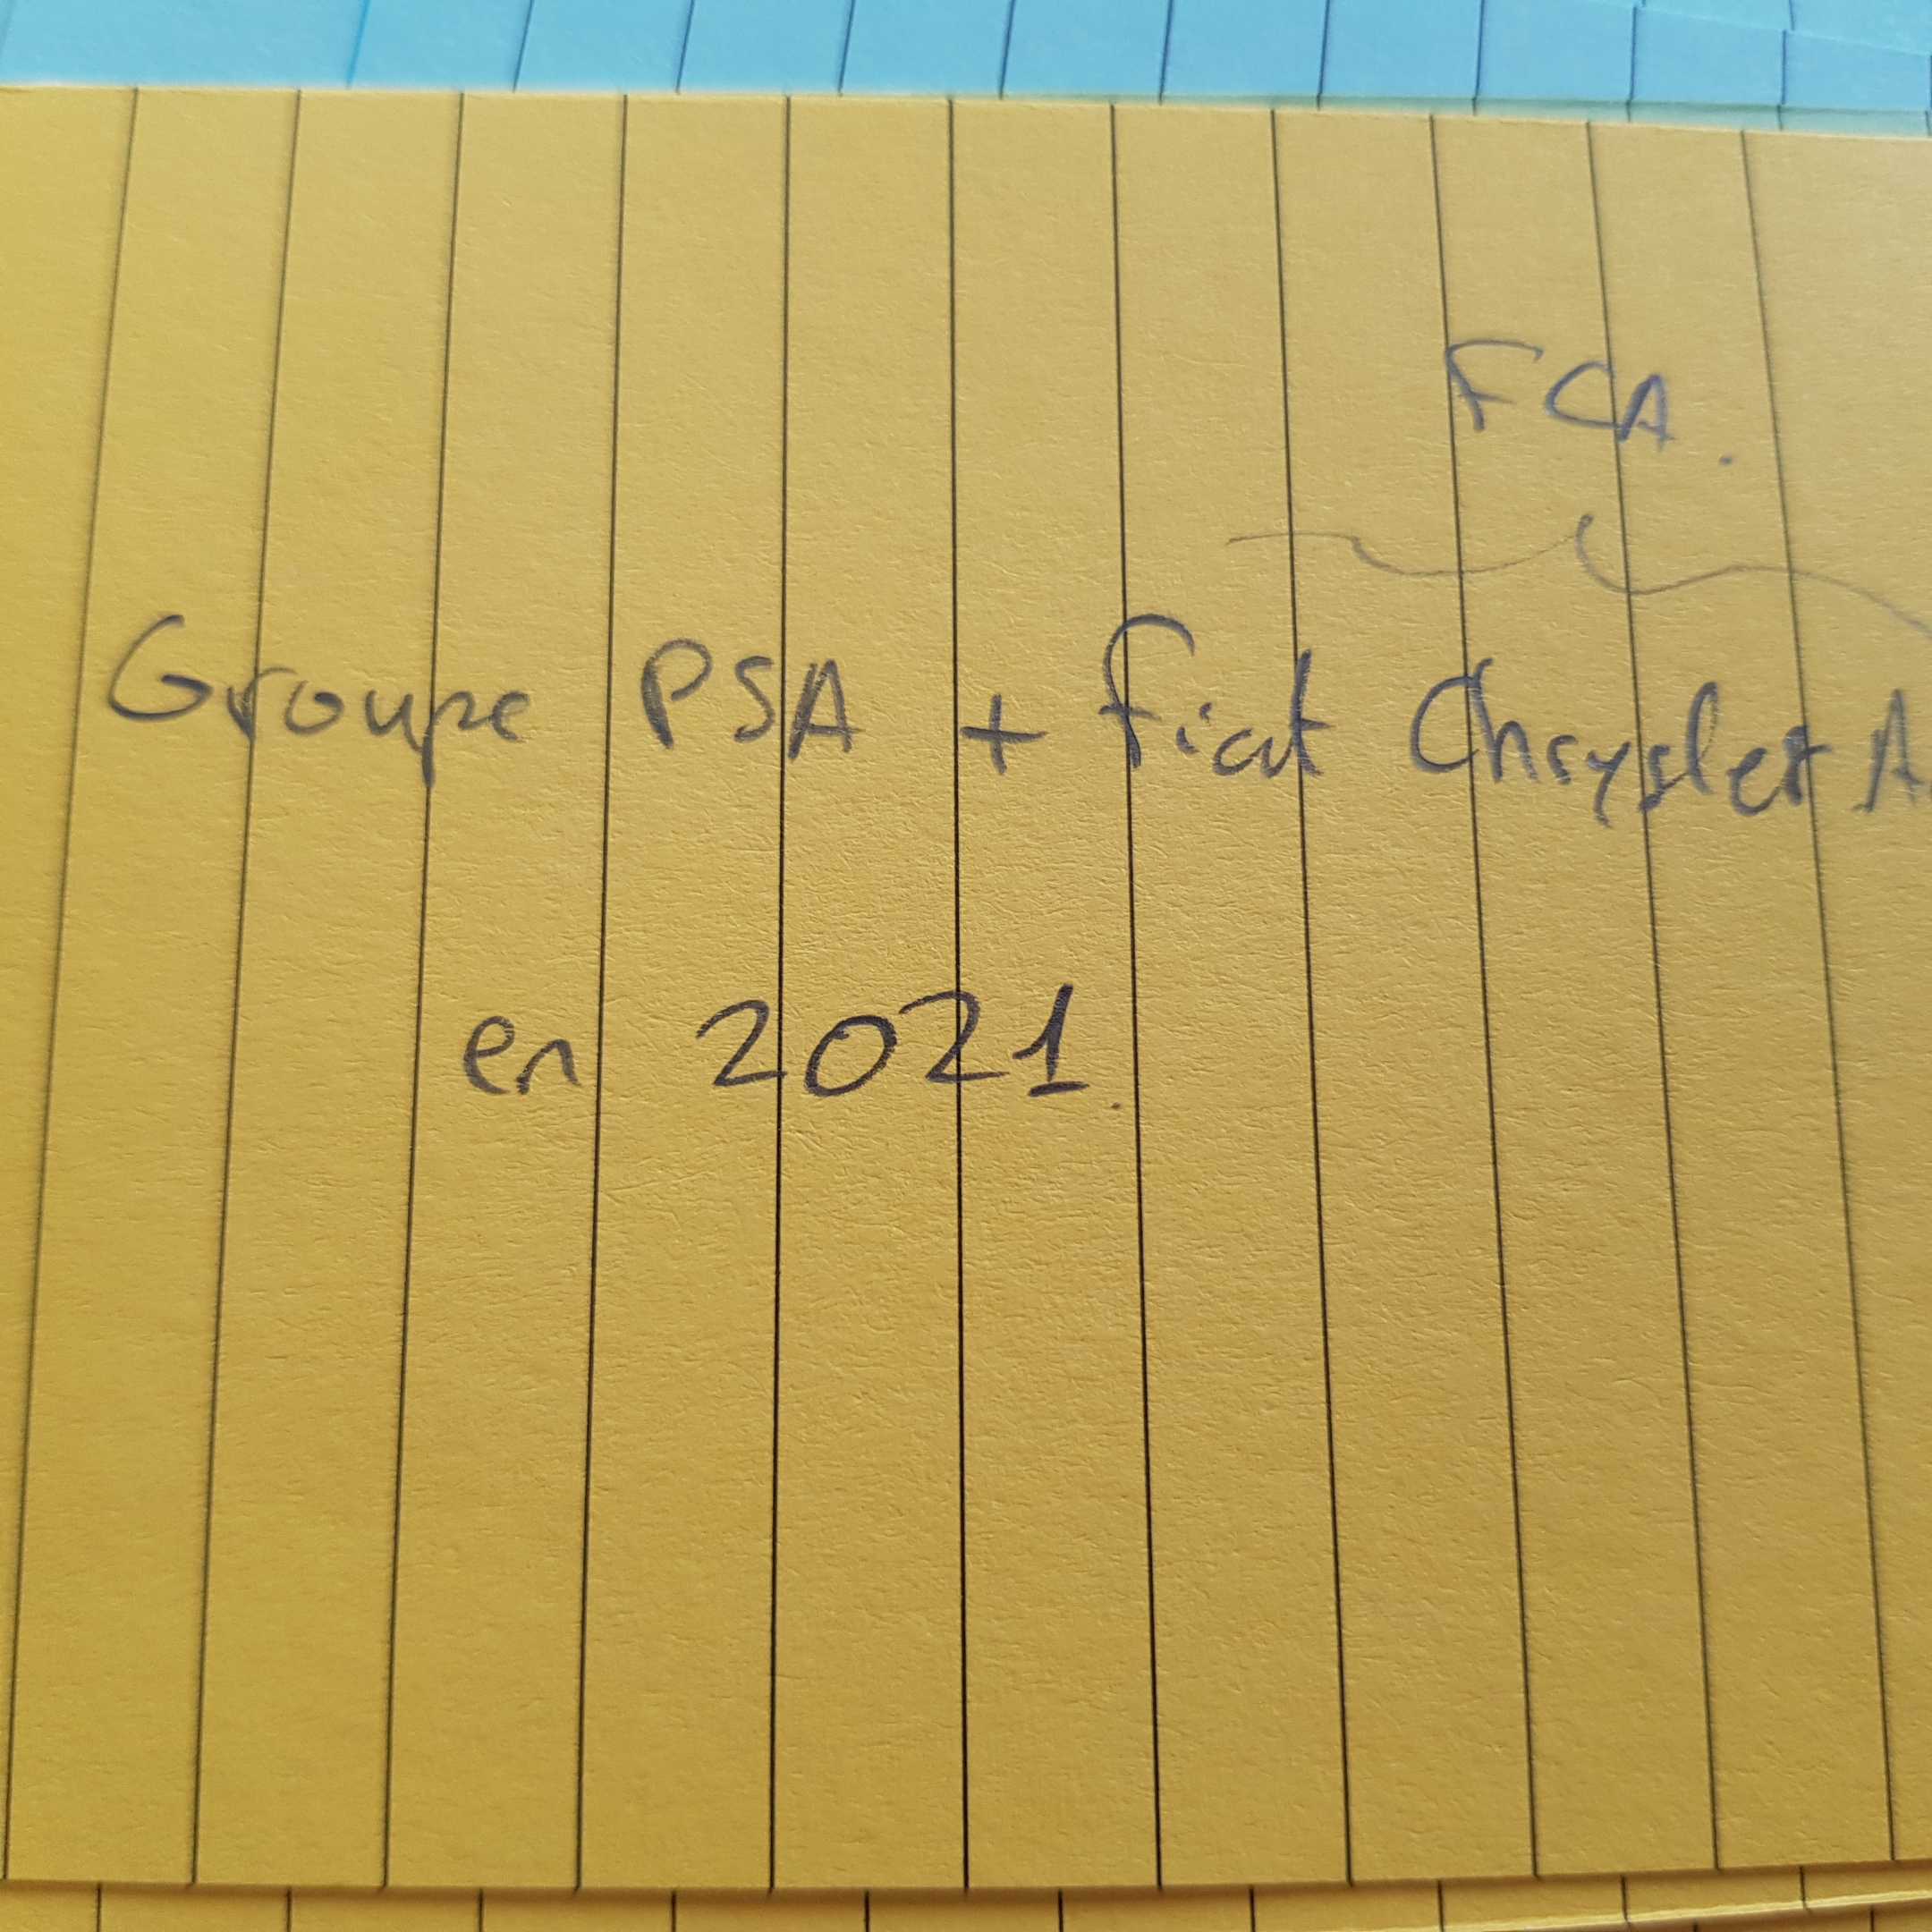 FCA.
Groupe PSA + Fiat Chrysler A
en 2021.